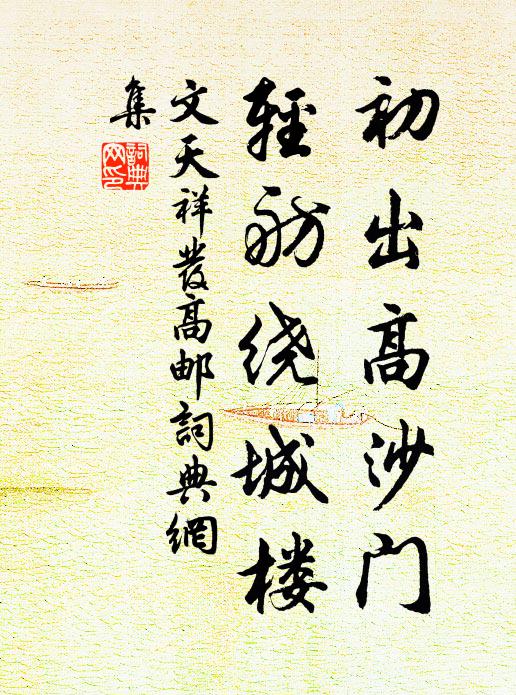 初出高沙门
輕舫绕城楼
文天祥發高邮詞典網
集
詞典网印